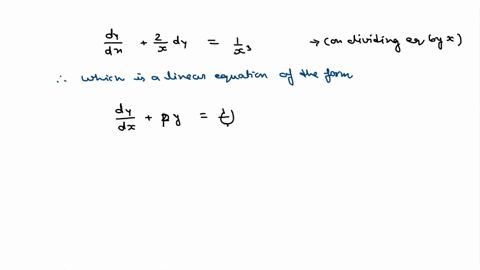 dy/dx + 2/x dy = 1/x³ → (on dividing by x)
∴ which is a linear equation of the form
dy/dx + py =